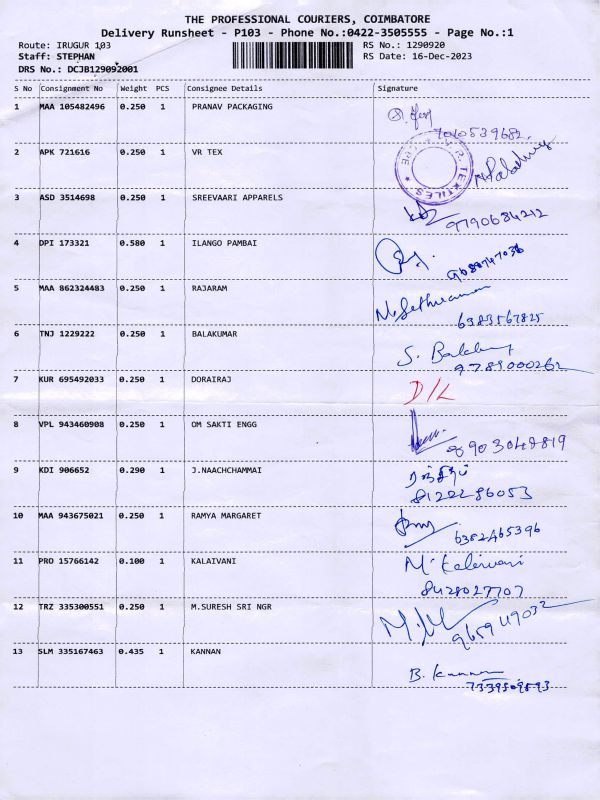 THE PROFESSIONAL COURIERS, COIMBATORE
Delivery Runsheet - P103 - Phone No.:0422-3505555 - Page No.:1
Route: IRUGUR 103 RS No.: 1290920
Staff: STEPHAN RS Date: 16-Dec-2023
DRS No.: DCJB129092001
S No Consignment No Weight PCS Consignee Details Signature
1 MAA 105482496 0.250 1 PRANAV PACKAGING
2 APK 721616 0.250 1 VR TEX
TEXTILES
3 ASD 3514698 0.250 1 SREEVAARI APPARELS
9790684212
4 DPI 173321 0.580 1 ILANGO PAMBAI
5 MAA 862324483 0.250 1 RAJARAM
6383567825
6 TNJ 1229222 0.250 1 BALAKUMAR
9789000262
7 KUR 695492033 0.250 1 DORAIRAJ D/L
8 VPL 943460908 0.250 1 OM SAKTI ENGG
8903048819
9 KDI 906652 0.290 1 J.NAACHCHAMMAI
8122286053
10 MAA 943675021 0.250 1 RAMYA MARGARET
6382465396
11 PRO 15766142 0.100 1 KALAIVANI M. Kalaivani
8428027707
12 TRZ 335300551 0.250 1 M.SURESH SRI NGR
9659449032
13 SLM 335167463 0.435 1 KANNAN
B. Kannan